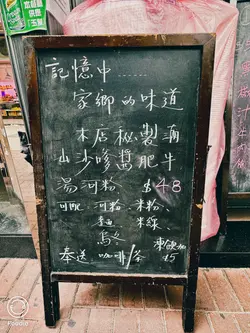 記憶中......
家鄉的味道
本店秘製滷
山沙嗲醬肥牛
湯河粉 $48
可配 河粉、米粉、
麵 米線
烏冬
奉送 咖啡/茶 凍飲加
$5